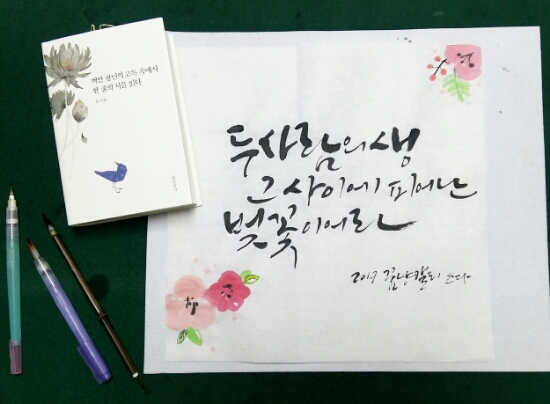 백만 광년의 고독 속에서
한 줄의 시를 읽다
두사람의생
그 사이에 피어난
벚꽃이어라
2019
쓰다